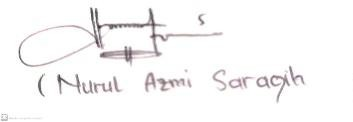 ( Nurul Azmi Saragih